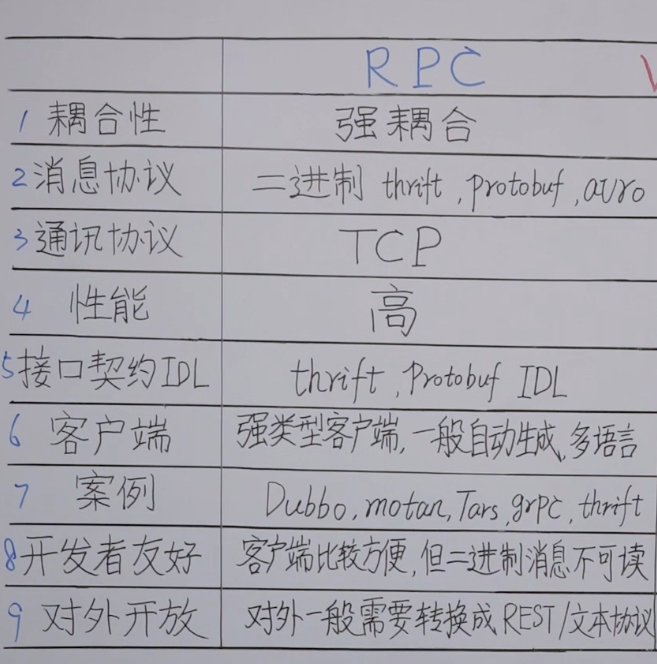 RPC
1 耦合性 强耦合
2 消息协议 二进制 thrift, protobuf, avro
3 通讯协议 TCP
4 性能 高
5 接口契约IDL thrift, Protobuf IDL
6 客户端 强类型客户端, 一般自动生成, 多语言
7 案例 Dubbo, motan, Tars, grpc, thrift
8 开发者友好 客户端比较方便, 但二进制消息不可读
9 对外开放 对外一般需要转换成REST/文本协议